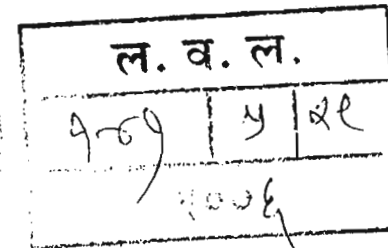 ल. व. ल.
१८१ | ५ | २९
२००६